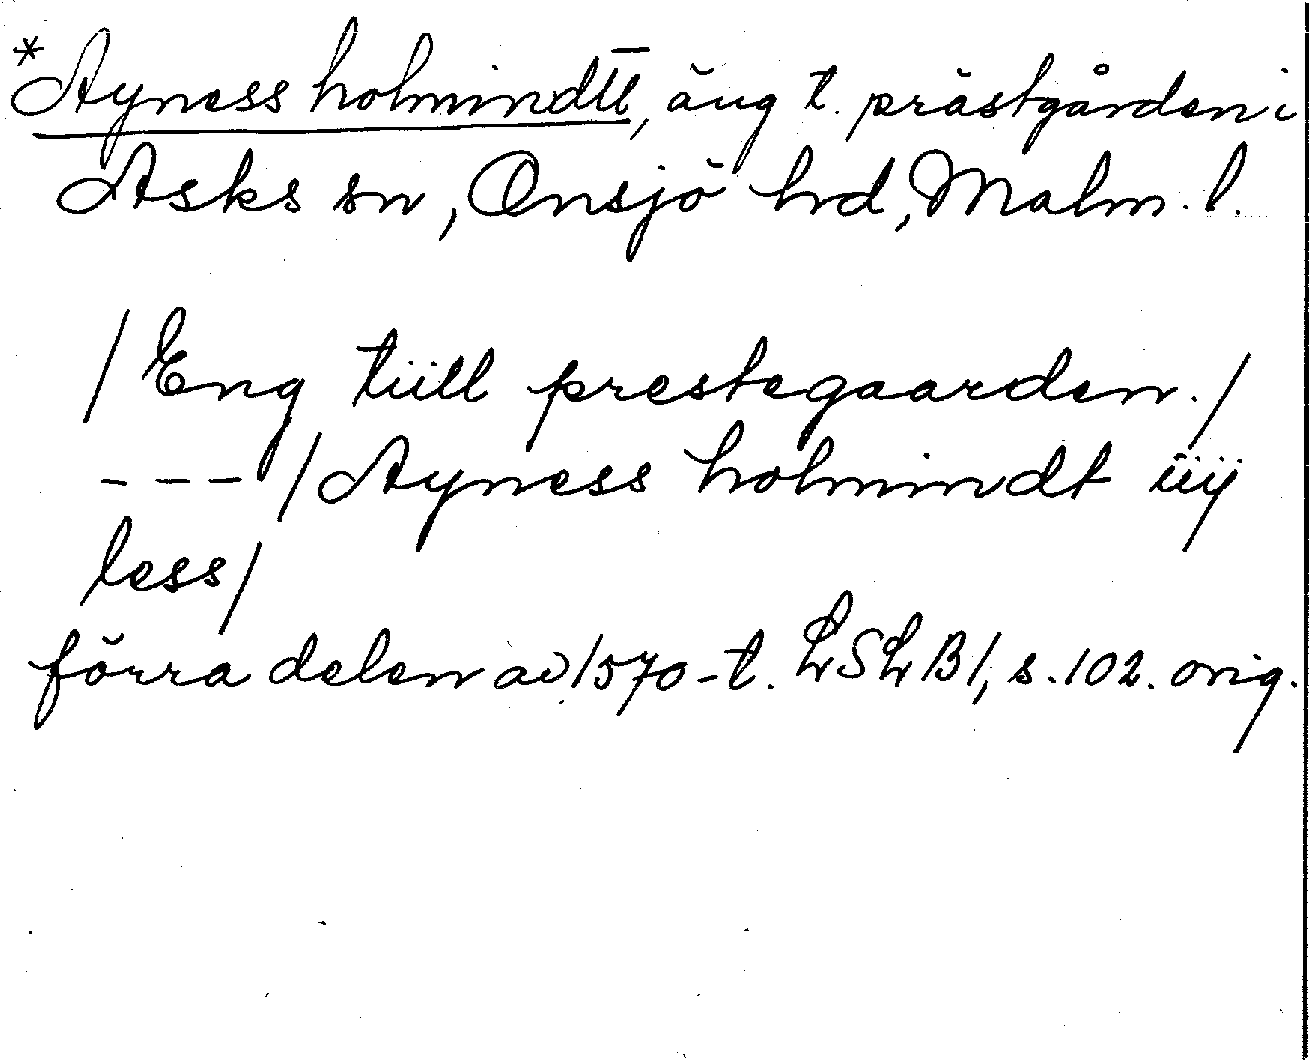 *Ayness holmindtt, äng t. prästgården i
Asks sn, Onsjö hrd, Malm. l.
/Eng tiill prestegaarden./
--- /Ayness holmindt iiij
less/
förra delen av 1570-t. LSLB1, s. 102. orig.